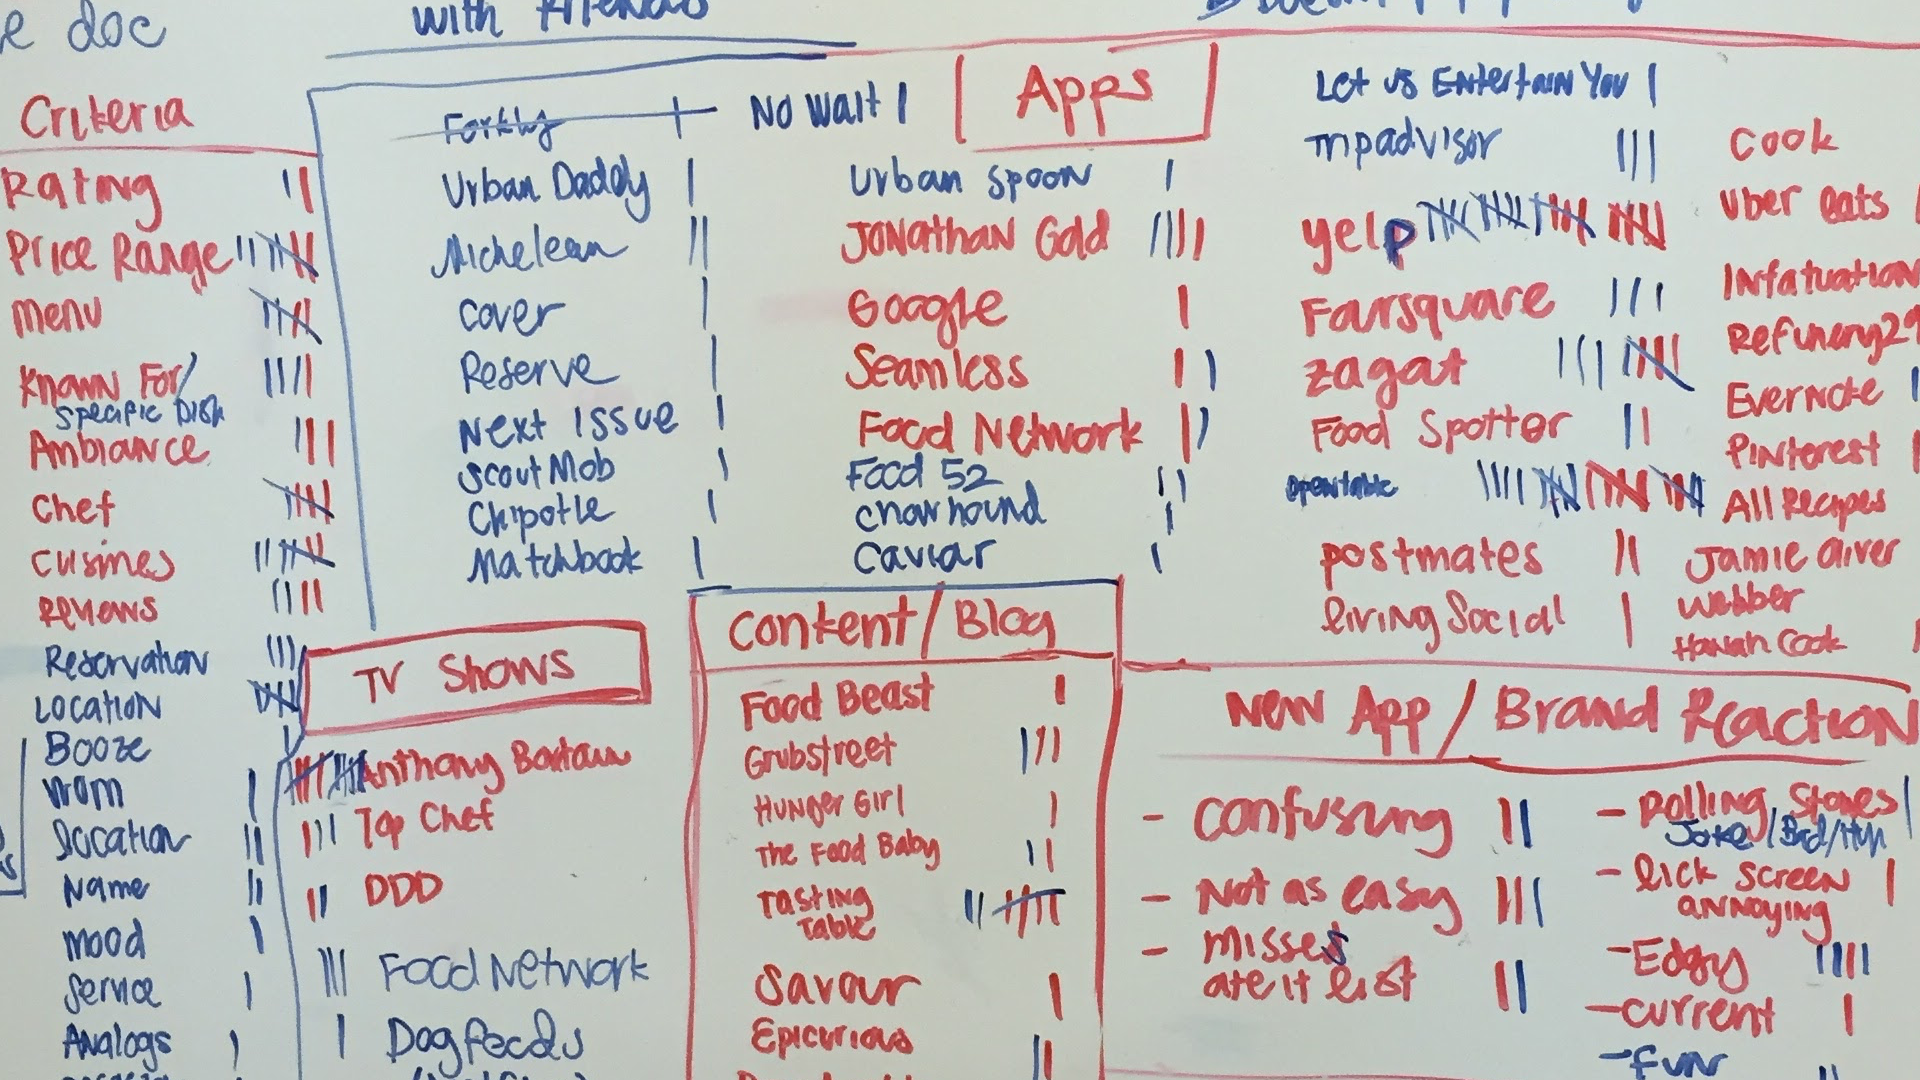 e doc
with Friends
Criteria
Rating
Price Range
Menu
Known For/
Specific Dish
Ambiance
Chef
Cusines
Reviews
Reservation
Location
Booze
Name
Mood
Service
Analogs
Forkly
No Wait
Apps
Urban Daddy
Michelean
Cover
Reserve
Next Issue
Scout Mob
Chipotle
Matchbook
Urban Spoon
Jonathan Gold
Google
Seamless
Food Network
Food 52
Chowhound
Caviar
Let us Entertain You
Tripadvisor
yelp
Foursquare
Zagat
Food Spotter
Opentable
postmates
living Social
Cook
Uber eats
Infatuation
Refinery29
Evernote
Pinterest
All Recipes
Jamie Oliver
Webber
Hanah Cook
TV Shows
Anthony
Top Chef
DDD
Food Network
Dog feeds
Content/Blog
Food Beast
Grubstreet
Hunger Girl
The Food Baby
Tasting
Table
Savour
Epicurious
New App/Brand Reaction
- Confusing
- Not as easy
- misses
ate it list
- Rolling Stones
- lick screen
annoying
- Edgy
- current
- fun